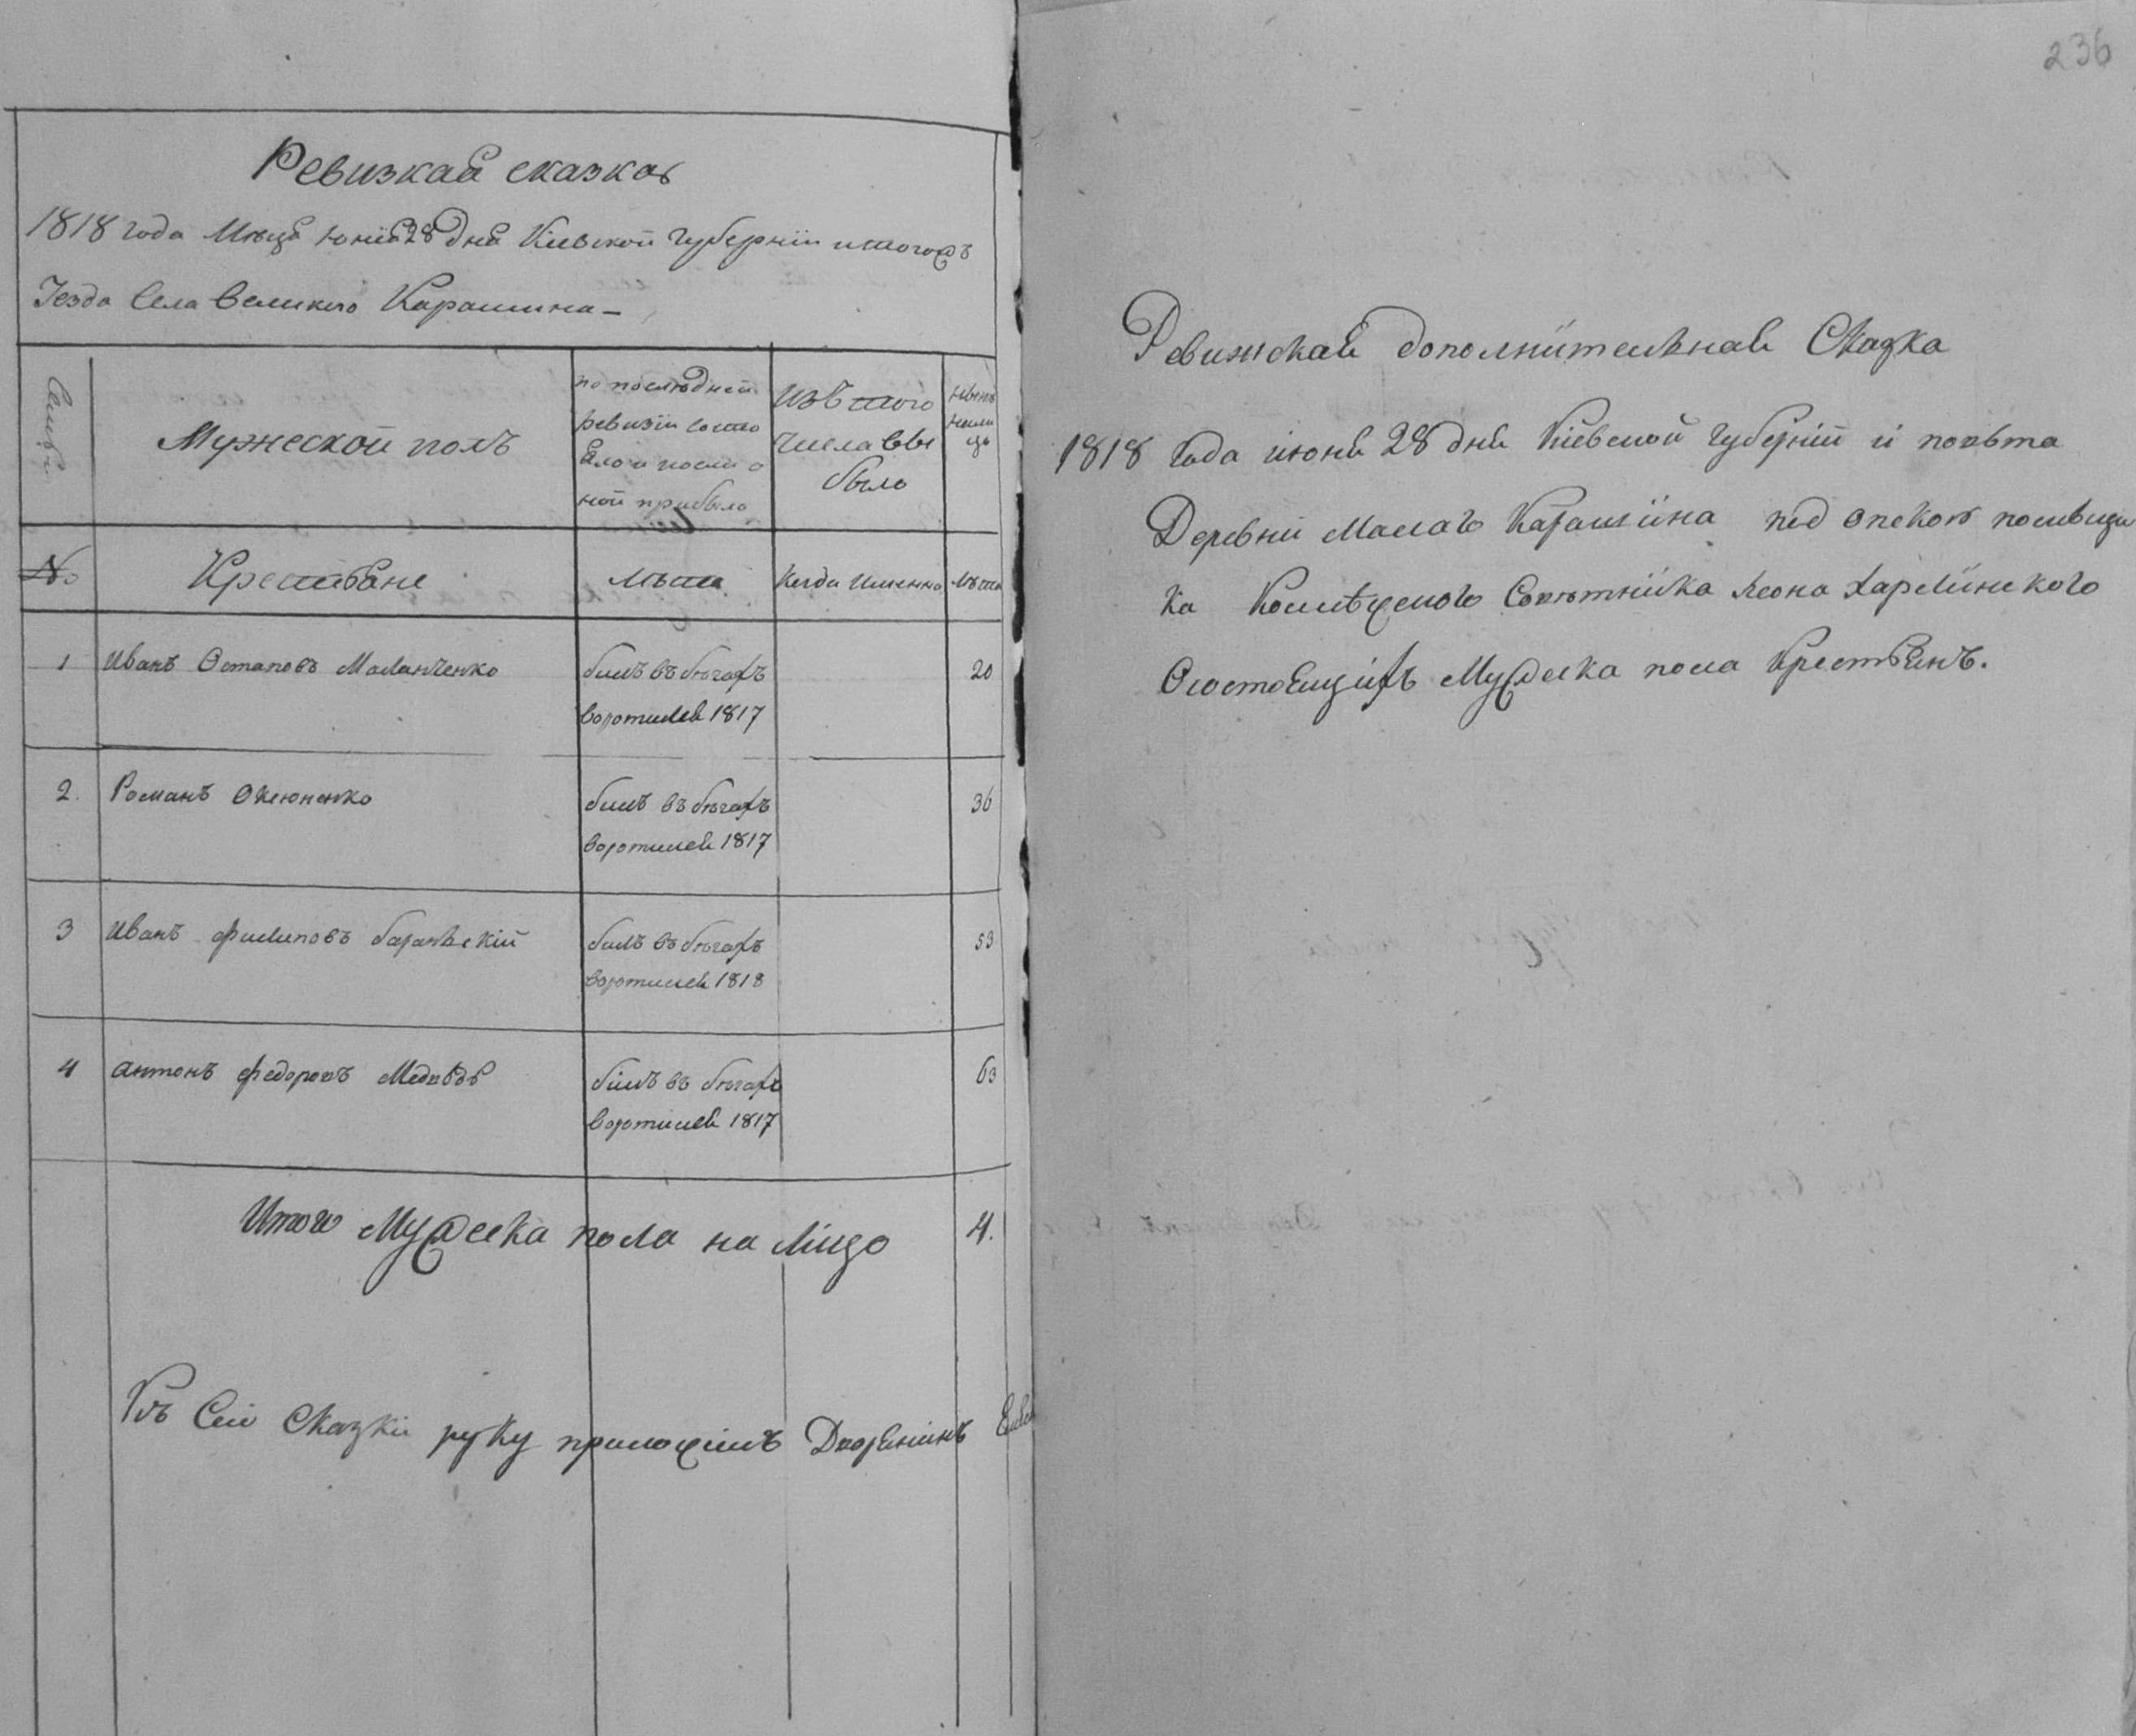 Ревизкая сказка
1818 года Мѣсца Юнія 28 дня Кіевской Губерніи и тогожъ
Уезда Села Великого Карашина
Мужеской полъ
по последней
ревизіи состо
яло и после о
ной прибыло
Изъ того
числа вы
было
Нынѣ
на ли
цѣ
№
Крестьяне
Лѣта
Когда Именно
Лѣта
1
Иванъ Остаповъ Маланченко
билъ въ бѣгахъ
воротился 1817
20
2.
Романъ
билъ въ бѣгахъ
воротился 1817
36
3
Иванъ Филиповъ баранвскій
билъ въ бѣгахъ
воротился 1818
53
4
Антонъ Федоровъ Медвѣдь
білъ въ бѣгахъ
воротился 1817
63
Итого Мужеска пола на лицо
4.
Къ Сей Сказки руку приложилъ Дворянинъ
236
Ревижская дополнительная Сказка
1818 Года июня 28 дня Кіевской Губерніи и повѣта
Деревни Малаго Карашина под опекою помѣщи
ка Коллѣжского Совѣтника Леона Харлинского
О состоящихъ Мужеска пола Крестьянъ.